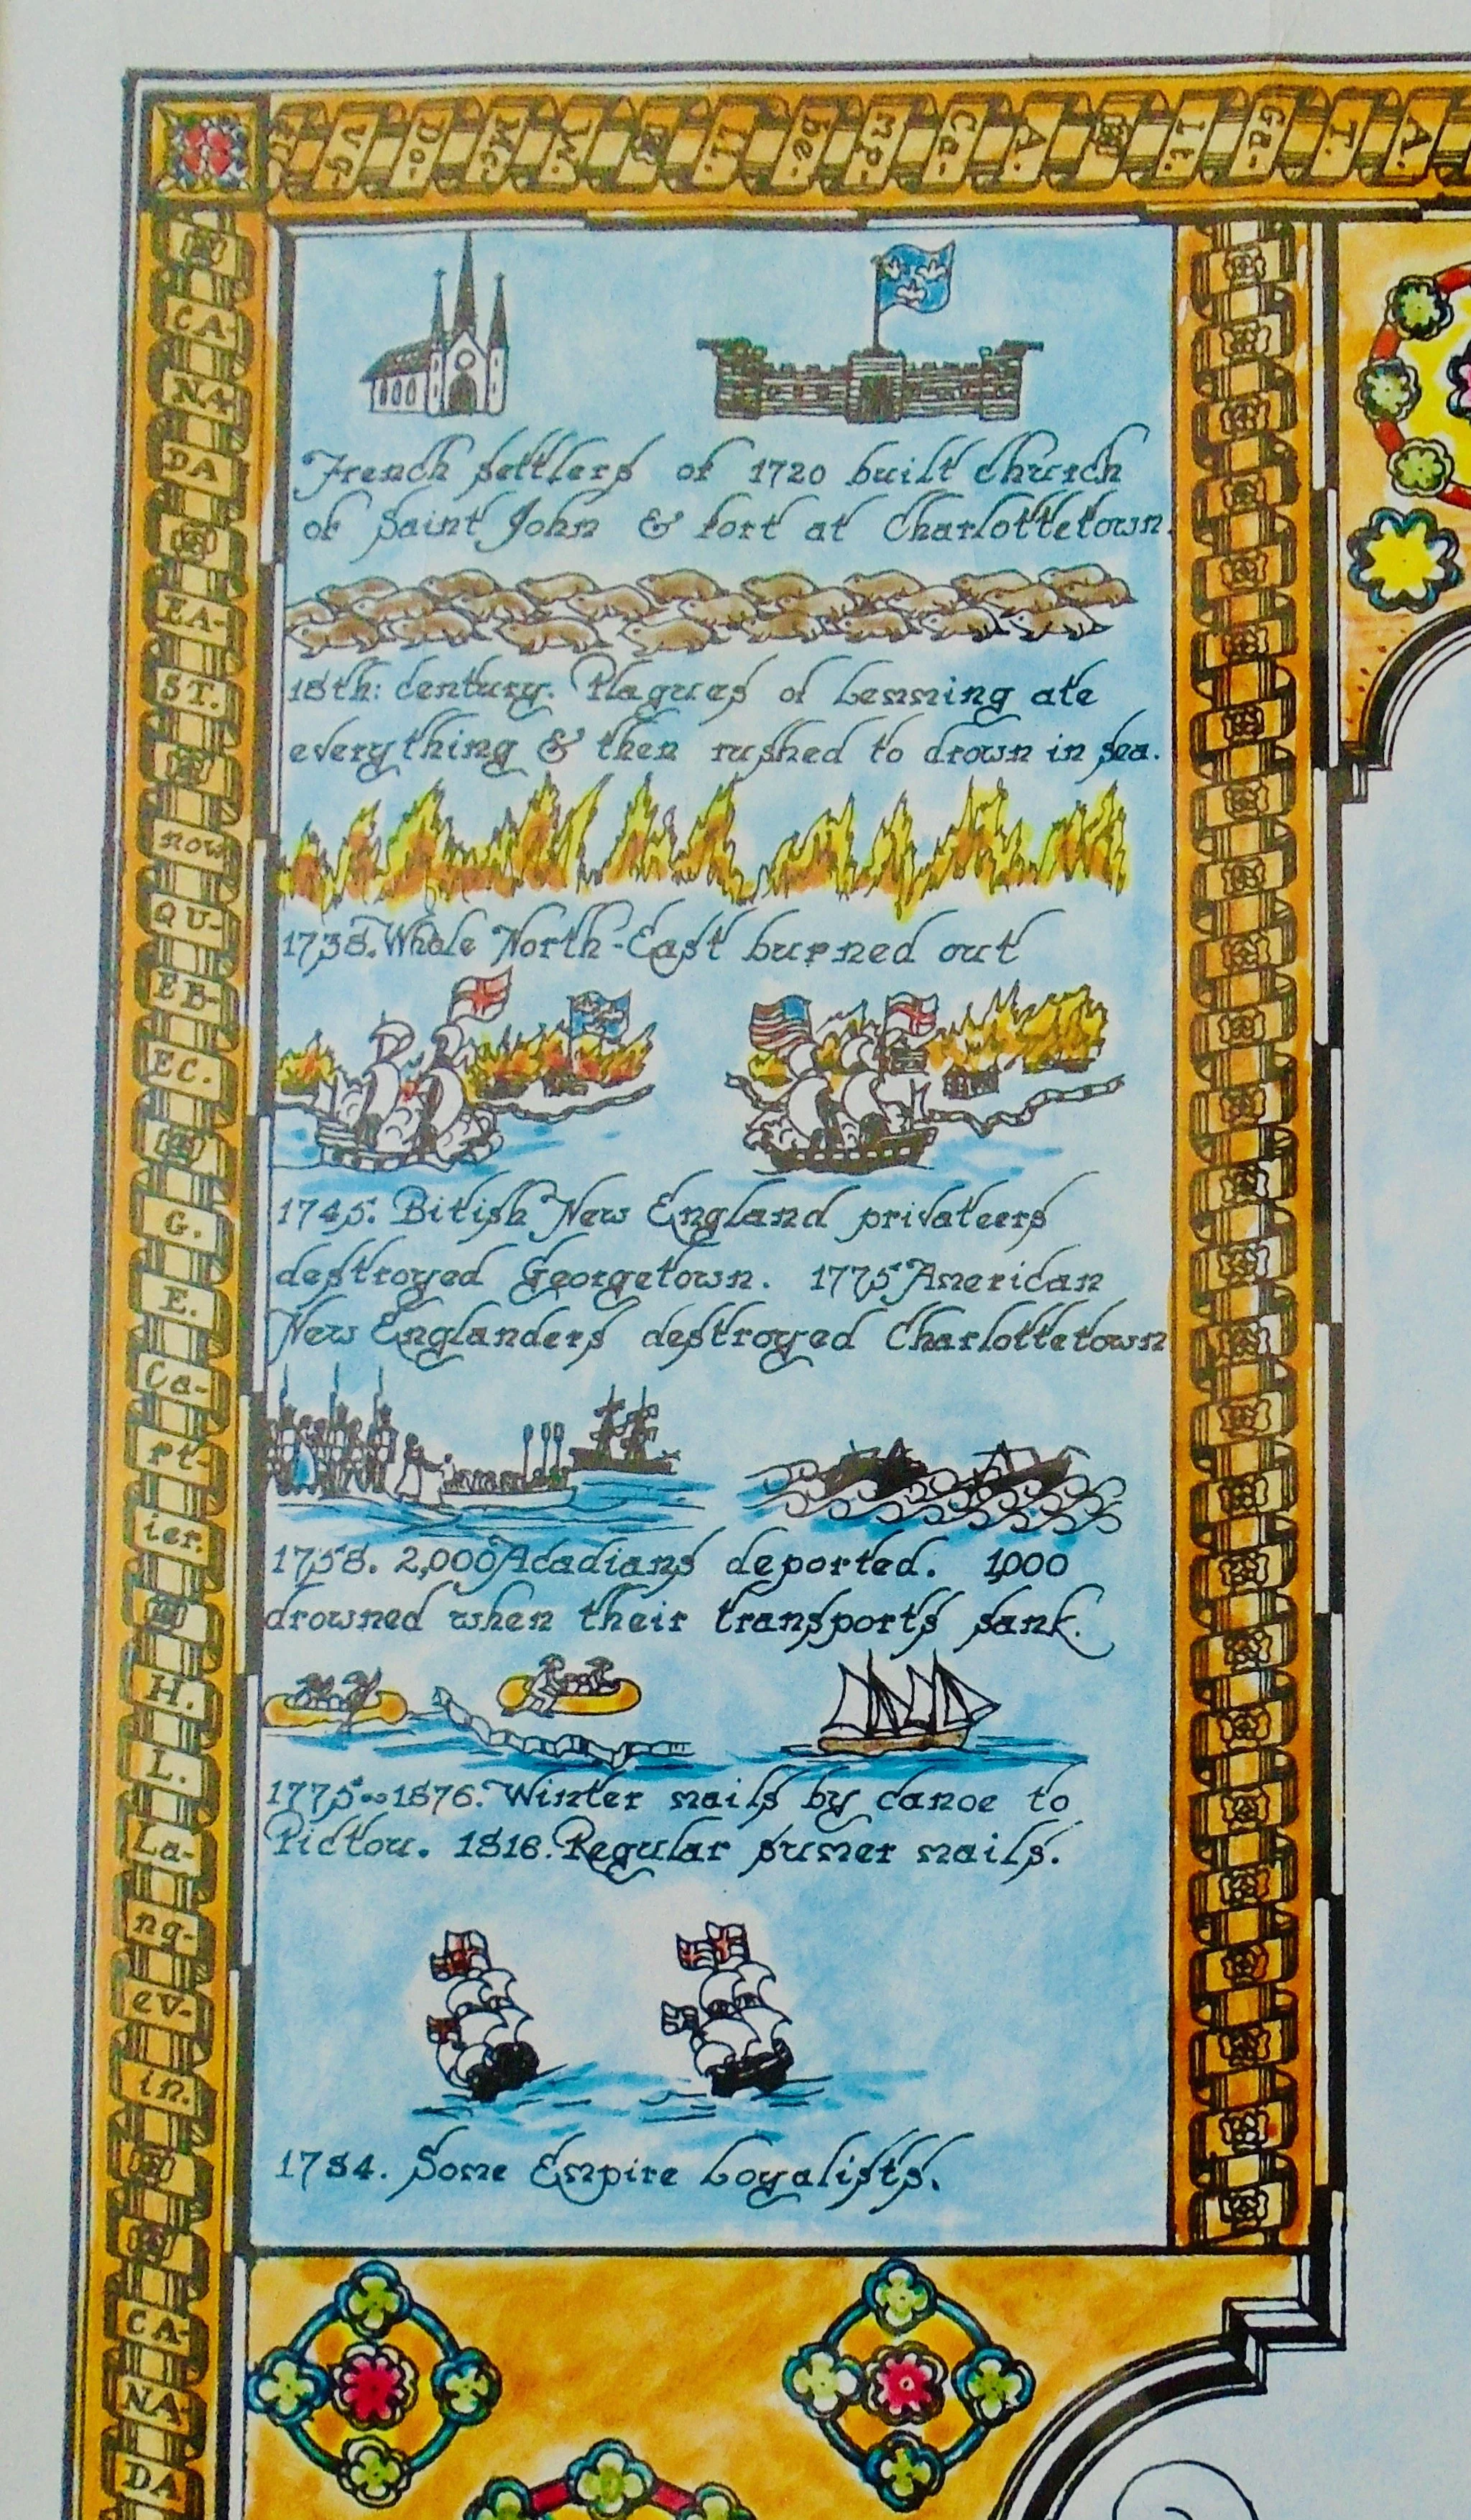 Vg-
Do-
Mc
Il.
be-
mp-
Ca-
A.
Lt.
Ga-
T.
A.
CA-
NA-
DA
EA-
ST.
now
QU-
EB-
EC.
G.
E.
Ca-
rt-
ier.
H.
L.
La-
ng-
ev-
in.
CA-
NA-
DA
French settlers of 1720 built church
of Saint John & fort at Charlottetown.
18th: century. Plagues of Lemming ate
everything & then rushed to drown in sea.
1738. Whole North-East burned out
1745. Bitish New England privateers
destroyed Georgetown. 1775 American
New Englanders destroyed Charlottetown
1758. 2,000 Acadians deported. 1,000
drowned when their transports sank.
1775~1876. Winter mails by canoe to
Pictou. 1816. Regular sumer mails.
1784. Some Empire Loyalists.